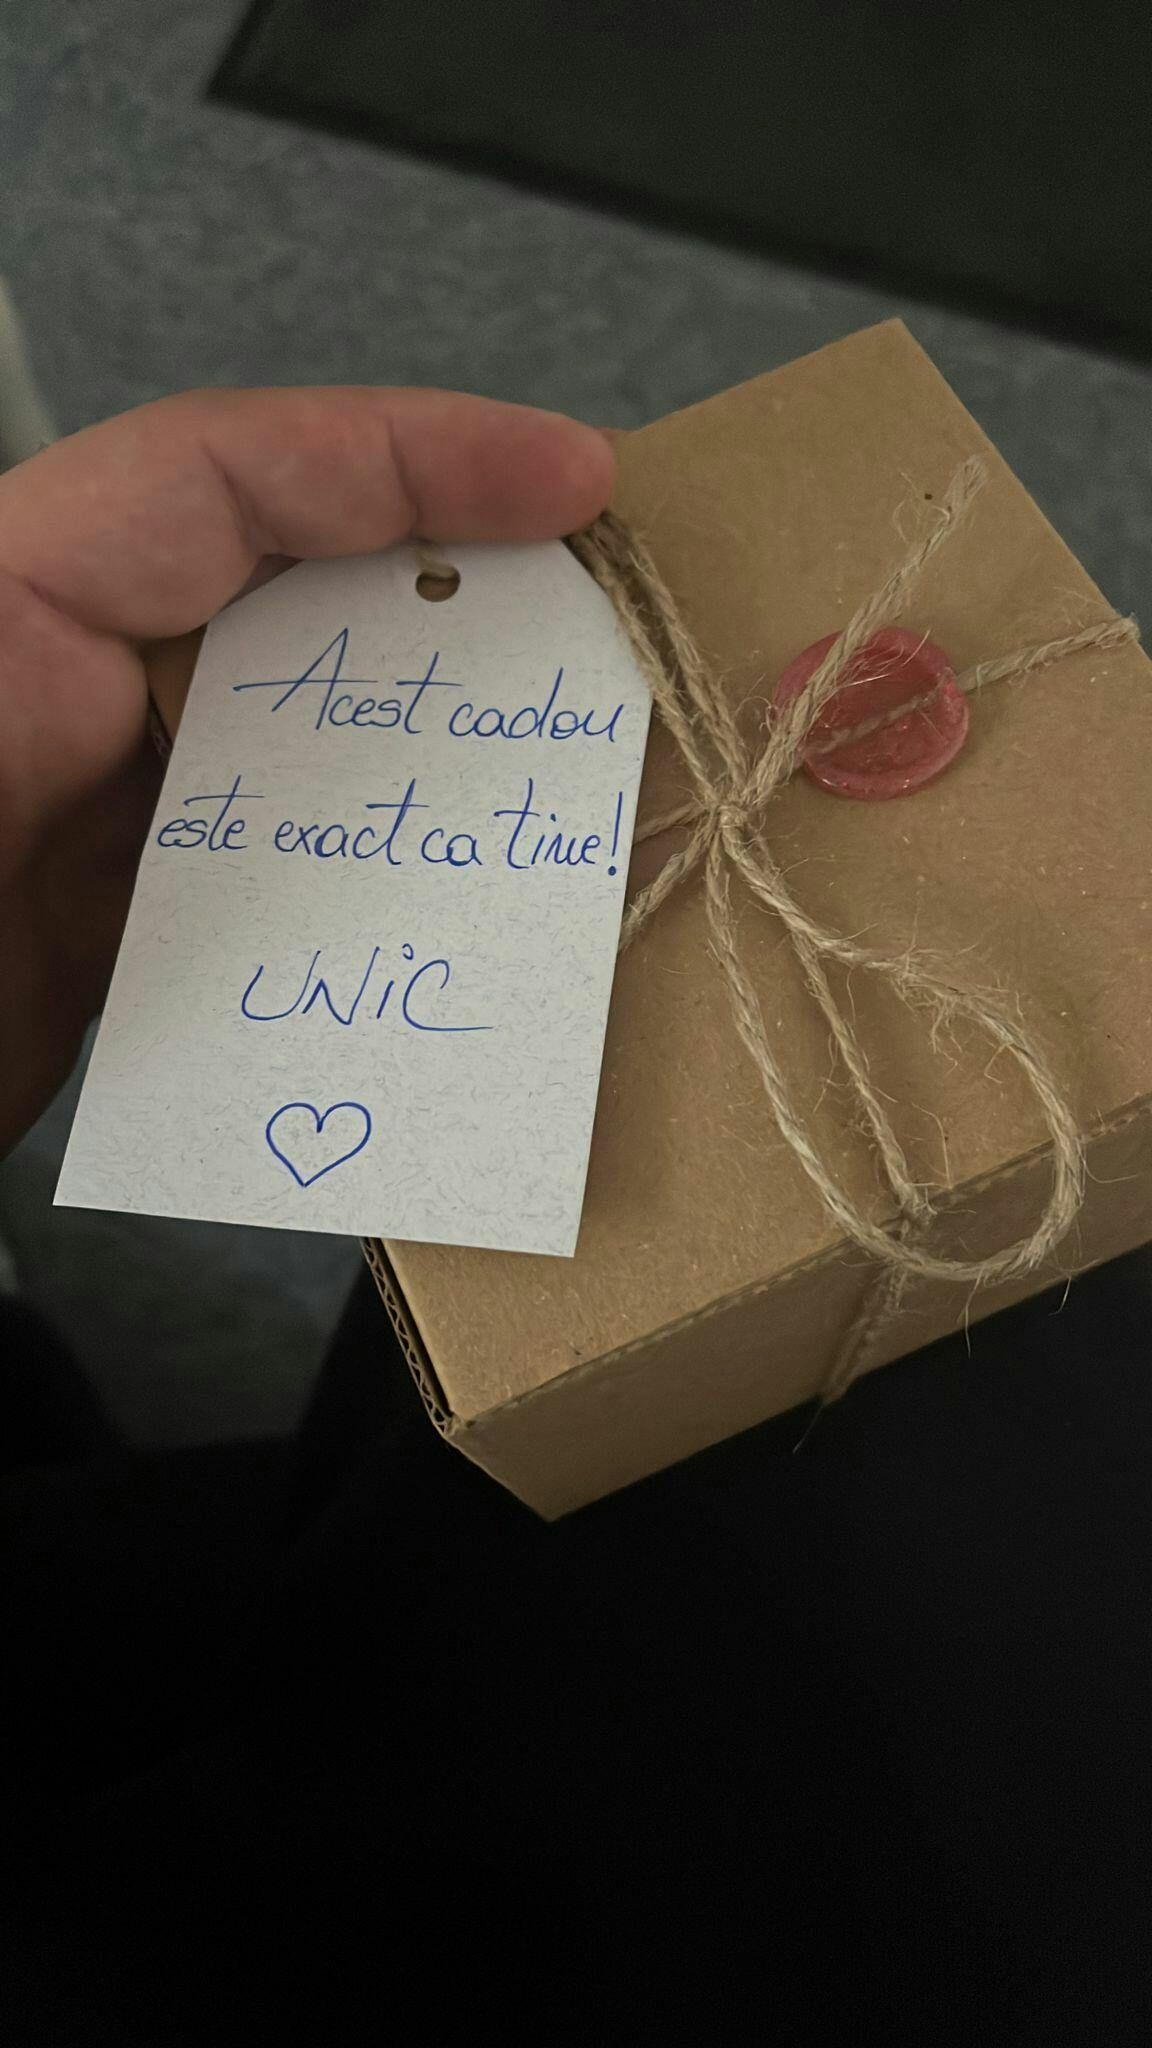 Acest cadou
este exact ca tine!
UNiC